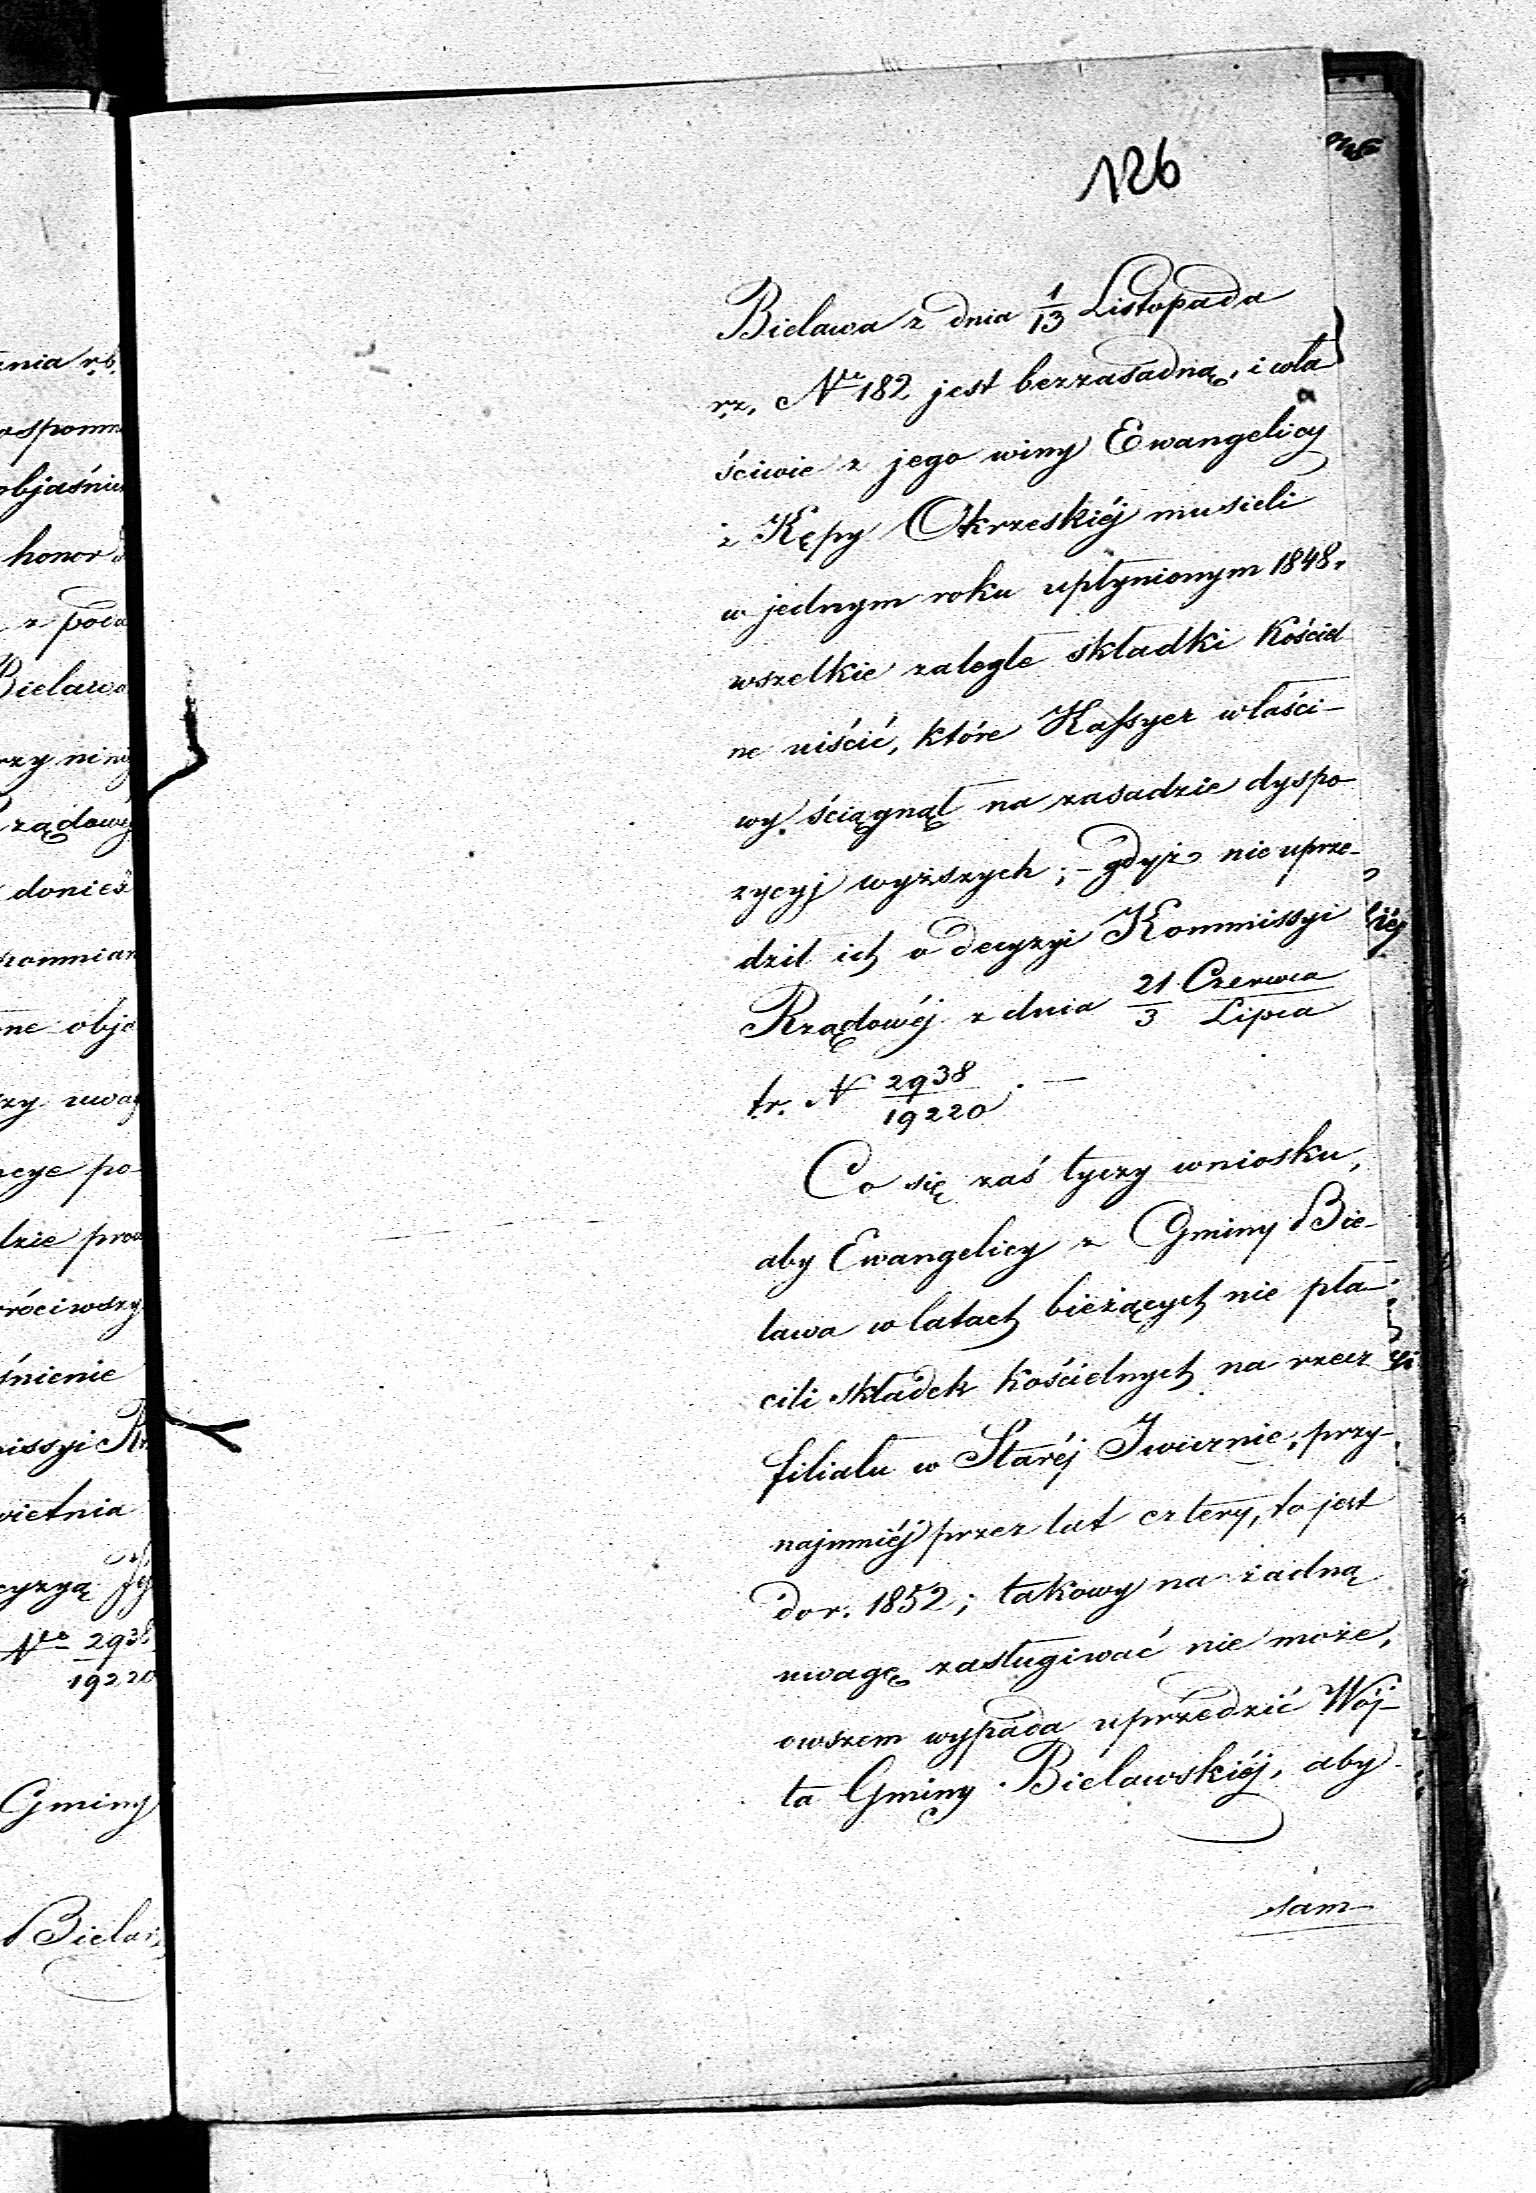 126
Bielawa z dnia 1/13 Listopada
r.z. Nro 182 jest bezzasadną, i wła
ściwie z jego winy Ewangelicy
z Kępy Okrzeskiéj musieli
w jednym roku upłynionym 1848.
wszelkie zaległe składki Kościel
ne uiścić, które Kassyer właści-
wy ściągnął na zasadzie dyspo
zycyj wyższych; - gdyż nie uprze-
dził ich o decyzyi Kommissyi
Rządowéj z dnia 21 Czerwca / 3 Lipca
t.r. N 2938/19220. —
Co się zaś tyczy wniosku,
aby Ewangelicy z Gminy Bie-
lawa w latach bieżących nie pła-
cili składek kościelnych na rzecz
filiału w Staréj Iwicznie, przy-
najmniéj przez lat cztery, to jest
do r. 1852; takowy na żadną
uwagę zasługiwać nie może,
owszem wypada uprzedzić Wój-
ta Gminy Bielawskiéj, aby
sam
nia r.b.
objaśnie
honor
z pod
Bielawa
Rządowéj
donieś
ne obja
zy uwa
cye po
dzie pro
róciwszy
śnienie
missyi Rz
wietnia
cyzyą
Nro 2938/19220
Gminy
Bielaw